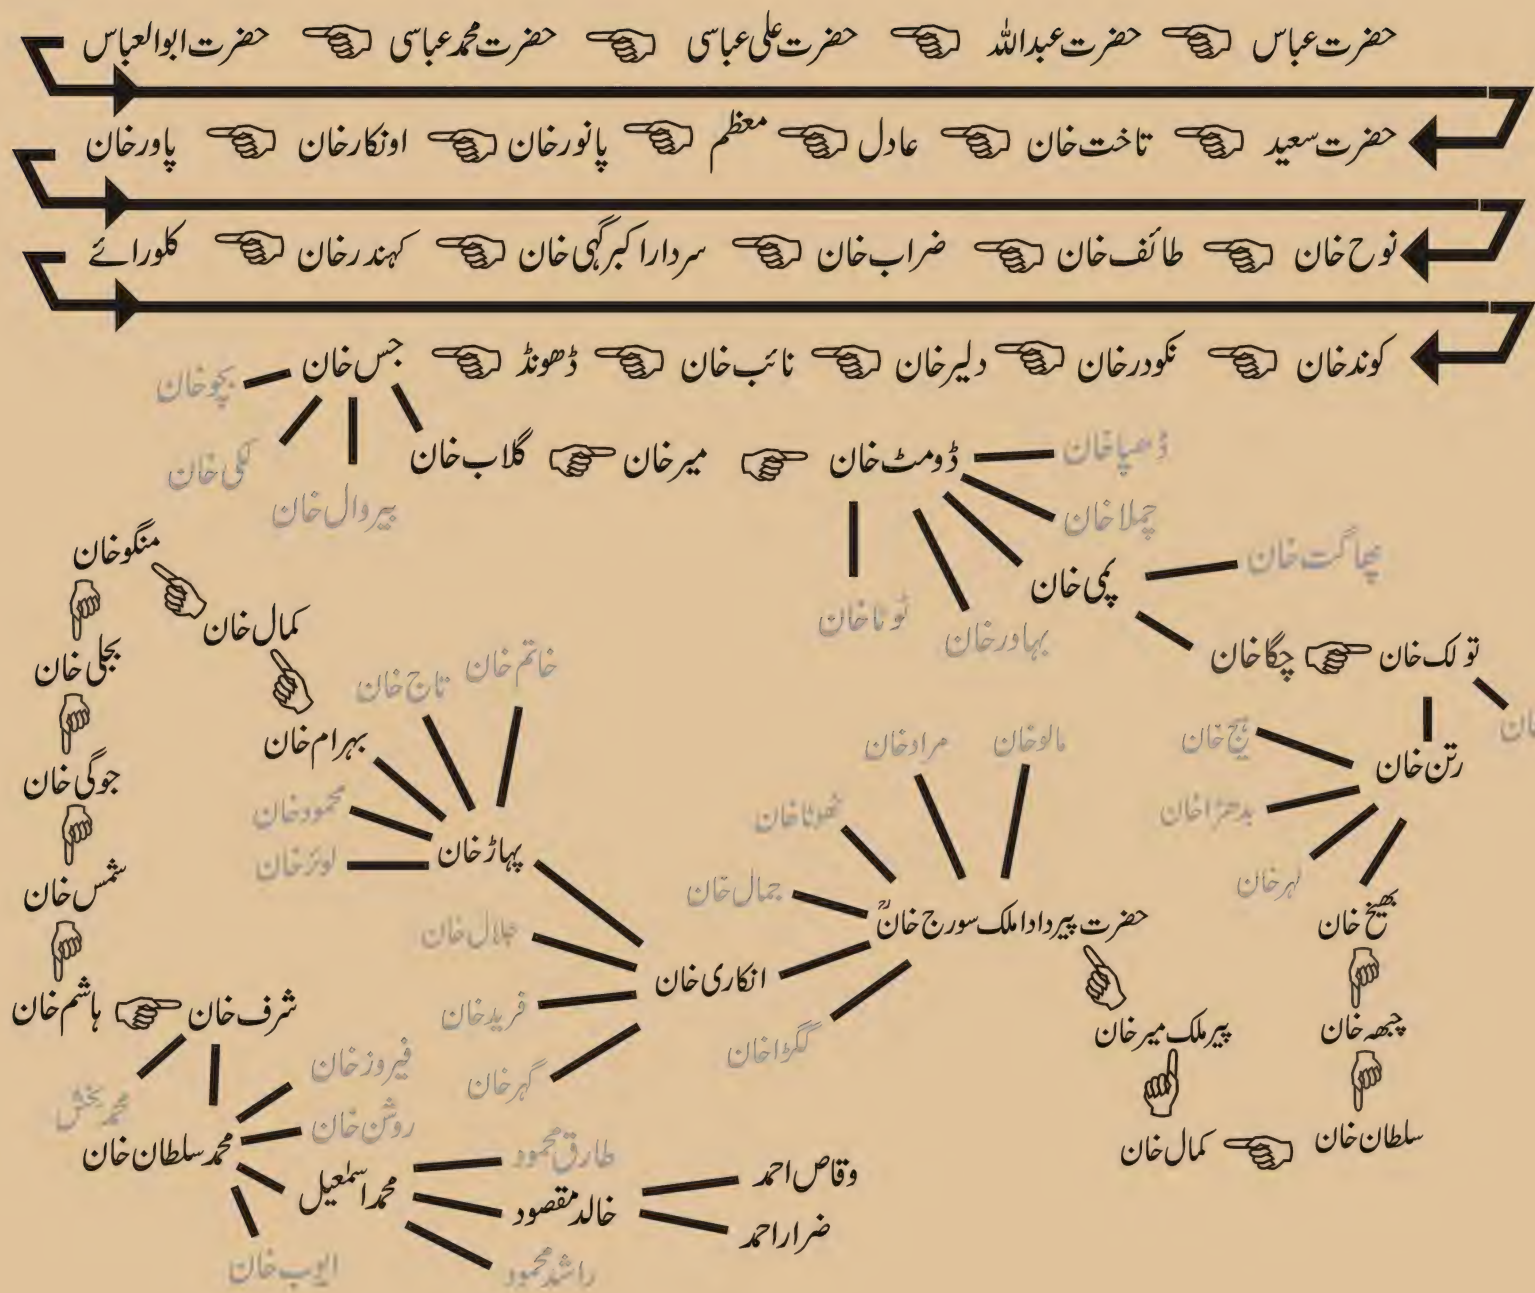 حضرت عباس حضرت عبداللہ حضرت علی عباسی حضرت محمد عباسی حضرت ابوالعباس
حضرت سعید تاخت خان عادل معظم پانور خان اونکار خان پاور خان
نوح خان طائف خان ضراب خان سردار اکبر گہی خان کہندر خان کلورائے
کوند خان نکودر خان دلیر خان نائب خان ڈھونڈ جس خان
بچو خان
لکی خان
بیروال خان
گلاب خان میر خان ڈومٹ خان ڈھپا خان
چملا خان
پمی خان
بہادر خان
ٹوٹا خان
پھاگت خان
چگا خان تولک خان
خان
رتن خان
بدھڑا خان
لہر خان
بھیخ خان
چبھہ خان
سلطان خان
کمال خان
پیر ملک میر خان
حضرت پیر دادا ملک سورج خانؒ
مالو خان
مراد خان
جمال خان
گگڑا خان
انکاری خان
جلال خان
فرید خان
گہر خان
پہاڑ خان
خاتم خان
تاج خان
محمود خان
بہرام خان
کمال خان
منگو خان
بجلی خان
جوگی خان
شمس خان
ہاشم خان شرف خان
محمد بخش
محمد سلطان خان
فیروز خان
روشن خان
ایوب خان
محمد اسمٰعیل
طارق محمود
خالد مقصود
راشد محمود
وقاص احمد
ضرار احمد